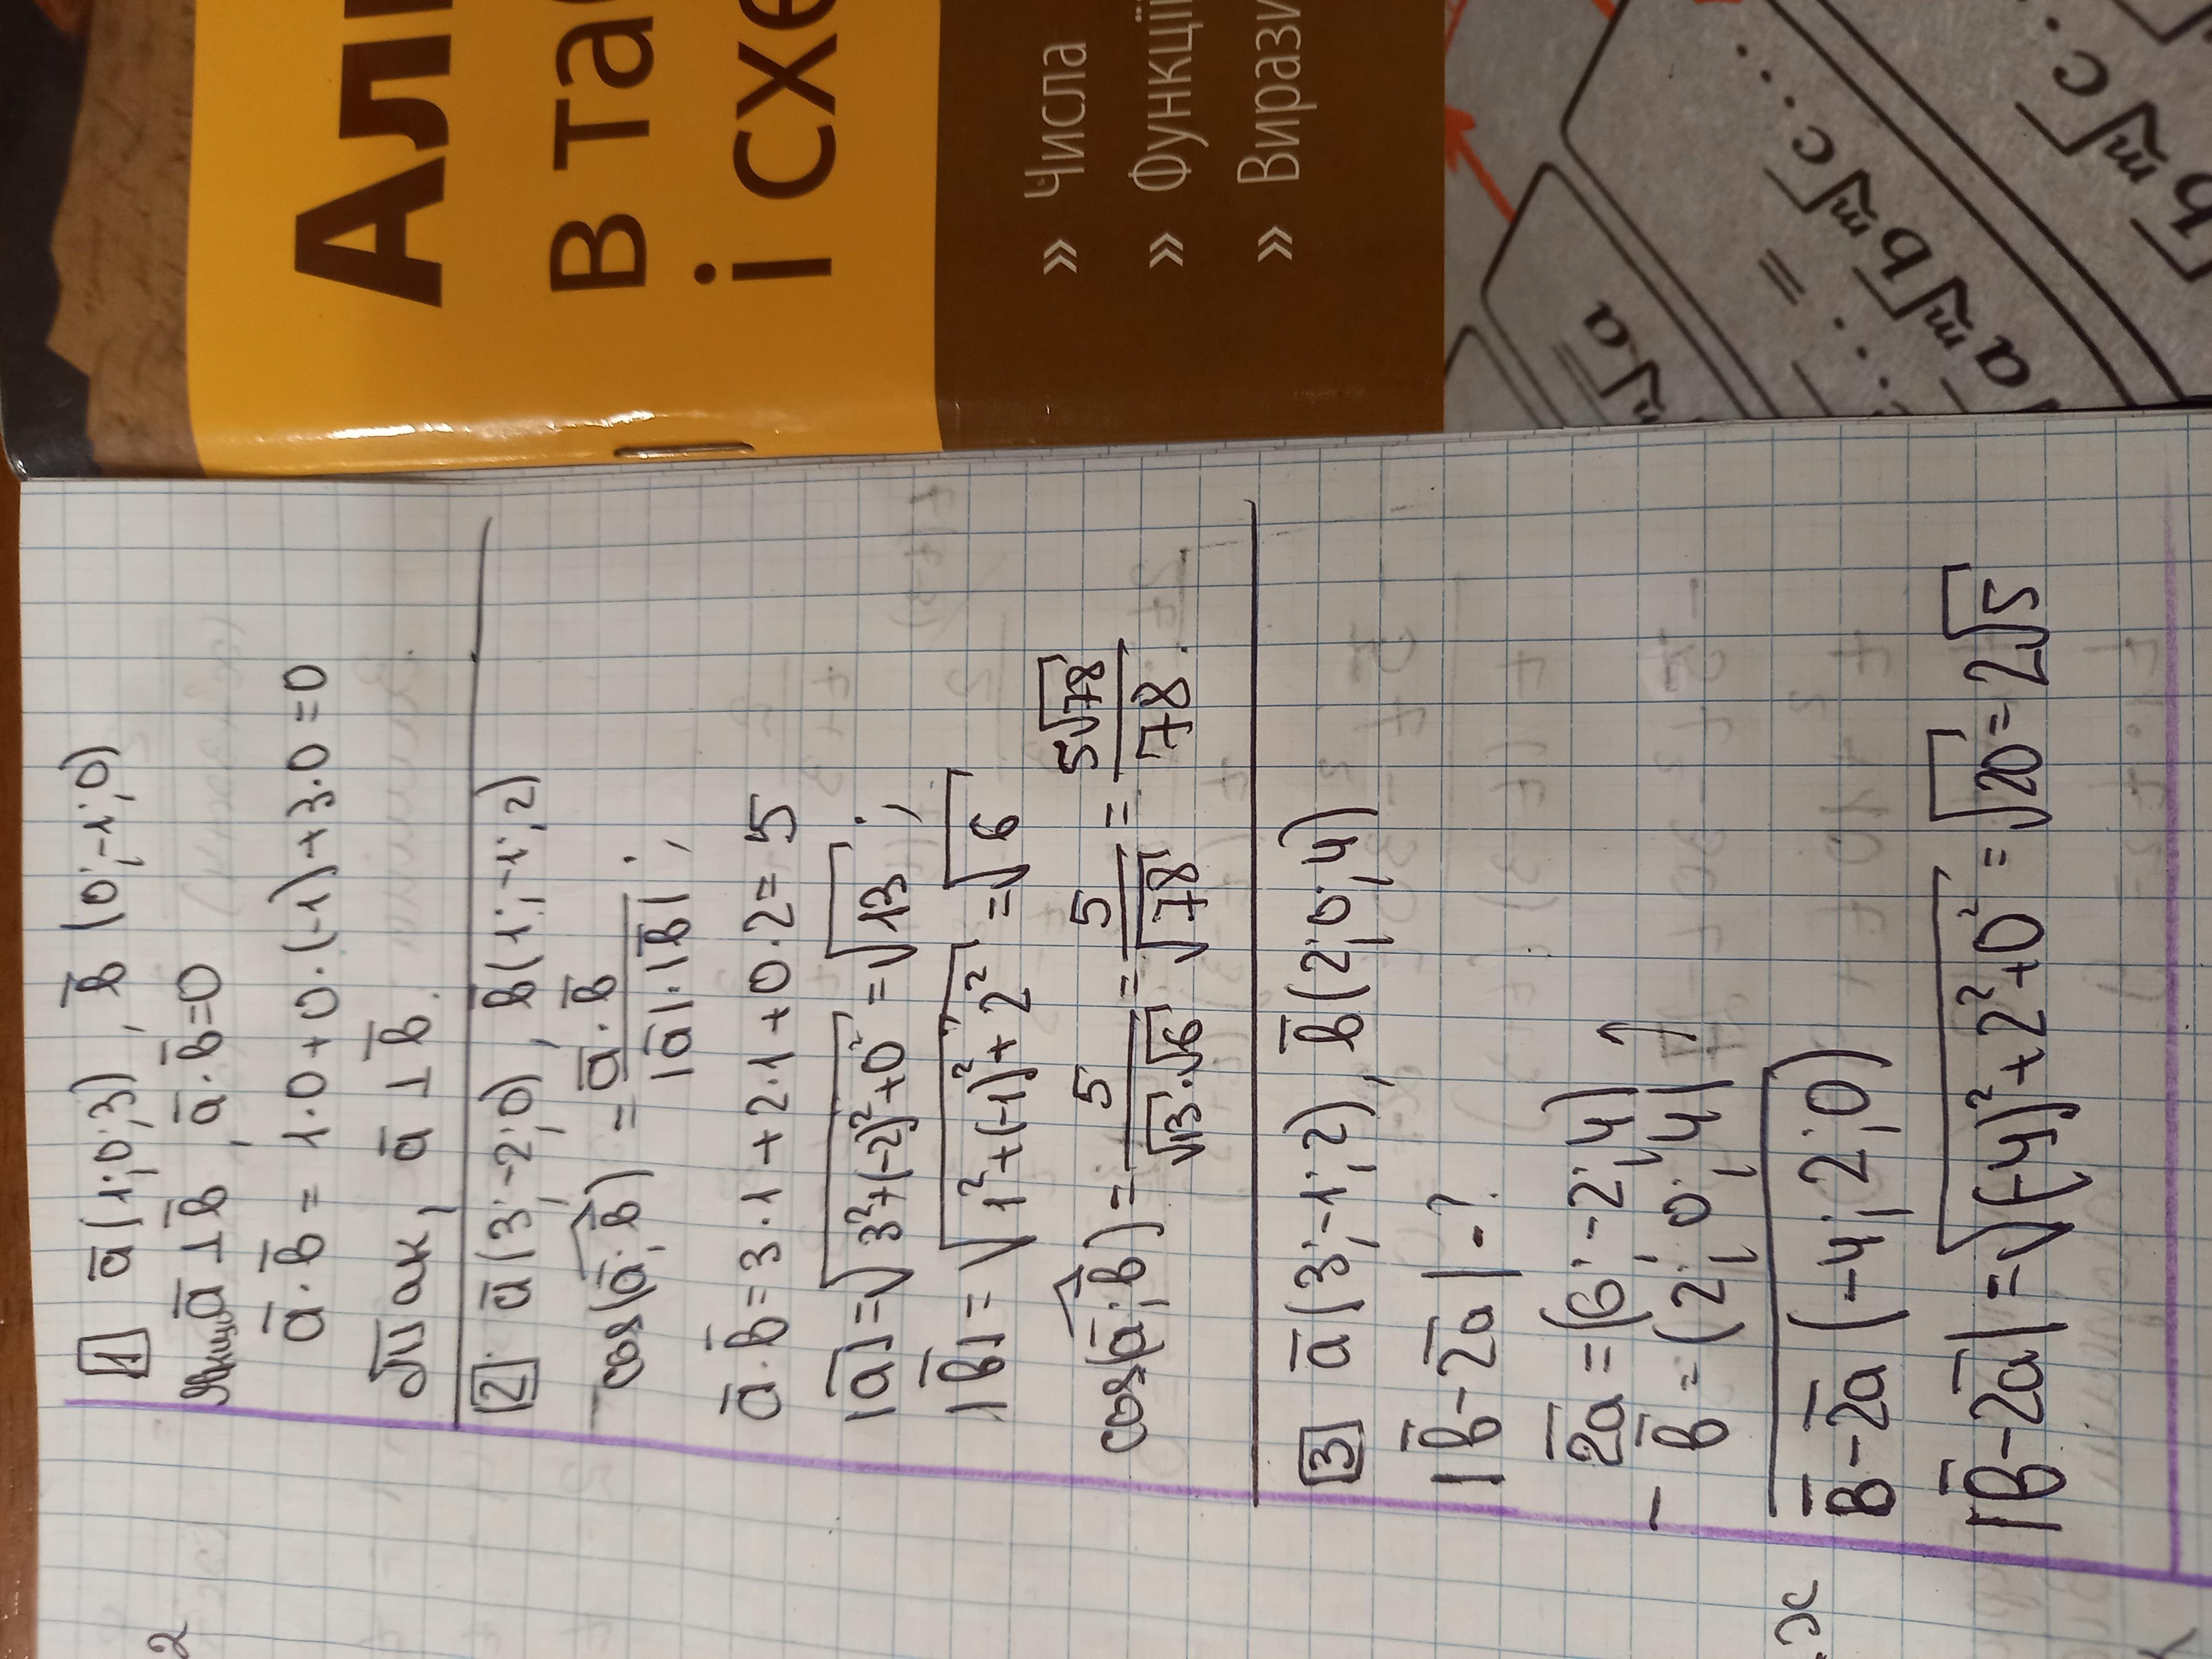 Ал
в та
і схе
» Числа
» Функції
» Вирази
1 a̅(1;0;3), в̅(0;-1;0)
Якщо a̅⊥в̅, a̅·в̅=0
a̅·в̅=1·0+0·(-1)+3·0=0
Так, a̅⊥в̅.
2. a̅(3;-2;0), в̅(1;-1;2)
cos(a̅;в̅)=a̅·в̅/|a̅|·|в̅|;
a̅·в̅=3·1+2·1+0·2=5
|a̅|=√3²+(-2)²+0²=√13;
|в̅|=√1²+(-1)²+2²=√6
cos(a̅;в̅)=5/√13·√6=5/√78=5√78/78.
3 a̅(3;-1;2), в̅(2;0;4)
|в̅-2a̅|-?
2a̅=(6;-2;4)
- в̅=(2;0;4)
в̅-2a̅(-4;2;0)
|в̅-2a̅|=√(-4)²+2²+0²=√20=2√5
2
x